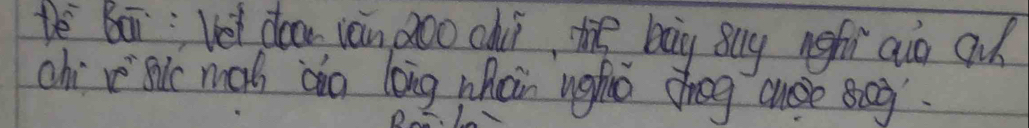 Đề Bài: Viết đoạn văn 200 chữ, trình bày suy nghĩ của anh
chị về sức mạnh của lòng nhân nghĩa trong cuộc sống.
Bài làm